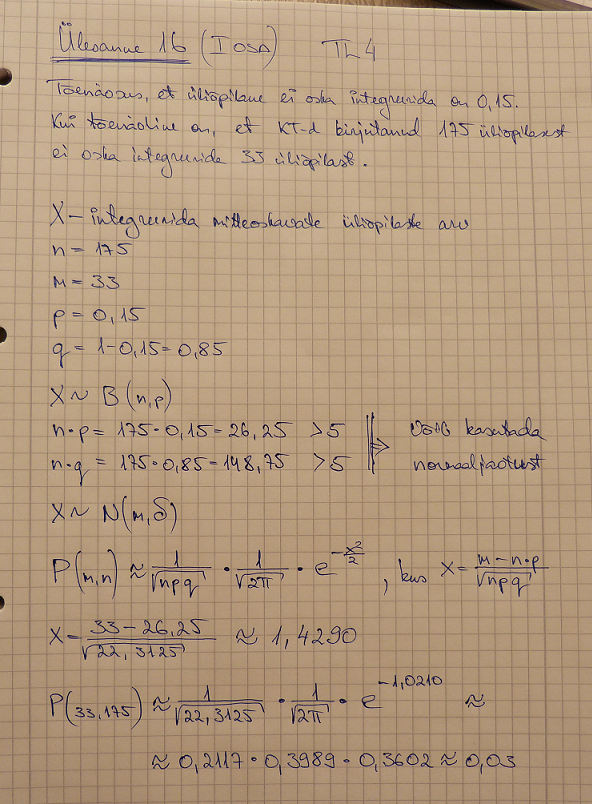 Ülesanne 16 (I OSA) TL 4
Tõenäosus, et üliõpilane ei oska integreerida on 0,15.
Kui tõenäoline on, et KT-d kirjutanud 175 üliõpilasest
ei oska integreerida 33 üliõpilast.
X – integreerida mitteoskavate üliõpilaste arv
n = 175
m = 33
p = 0,15
q = 1-0,15=0,85
X ~ B(n,p)
n·p = 175·0,15=26,25 >5 Võib kasutada
n·q = 175·0,85=148,75 >5 normaaljaotust
X ~ N(m,δ)
P(m,n) ≈ 1/√npq · 1/√2π · e^(-x²/2), kus X = (m-n·p)/√npq
X = (33-26,25)/√22,3125 ≈ 1,4290
P(33,175) ≈ 1/√22,3125 · 1/√2π · e^(-1,0210) ≈
≈ 0,2117 · 0,3989 · 0,3602 ≈ 0,03